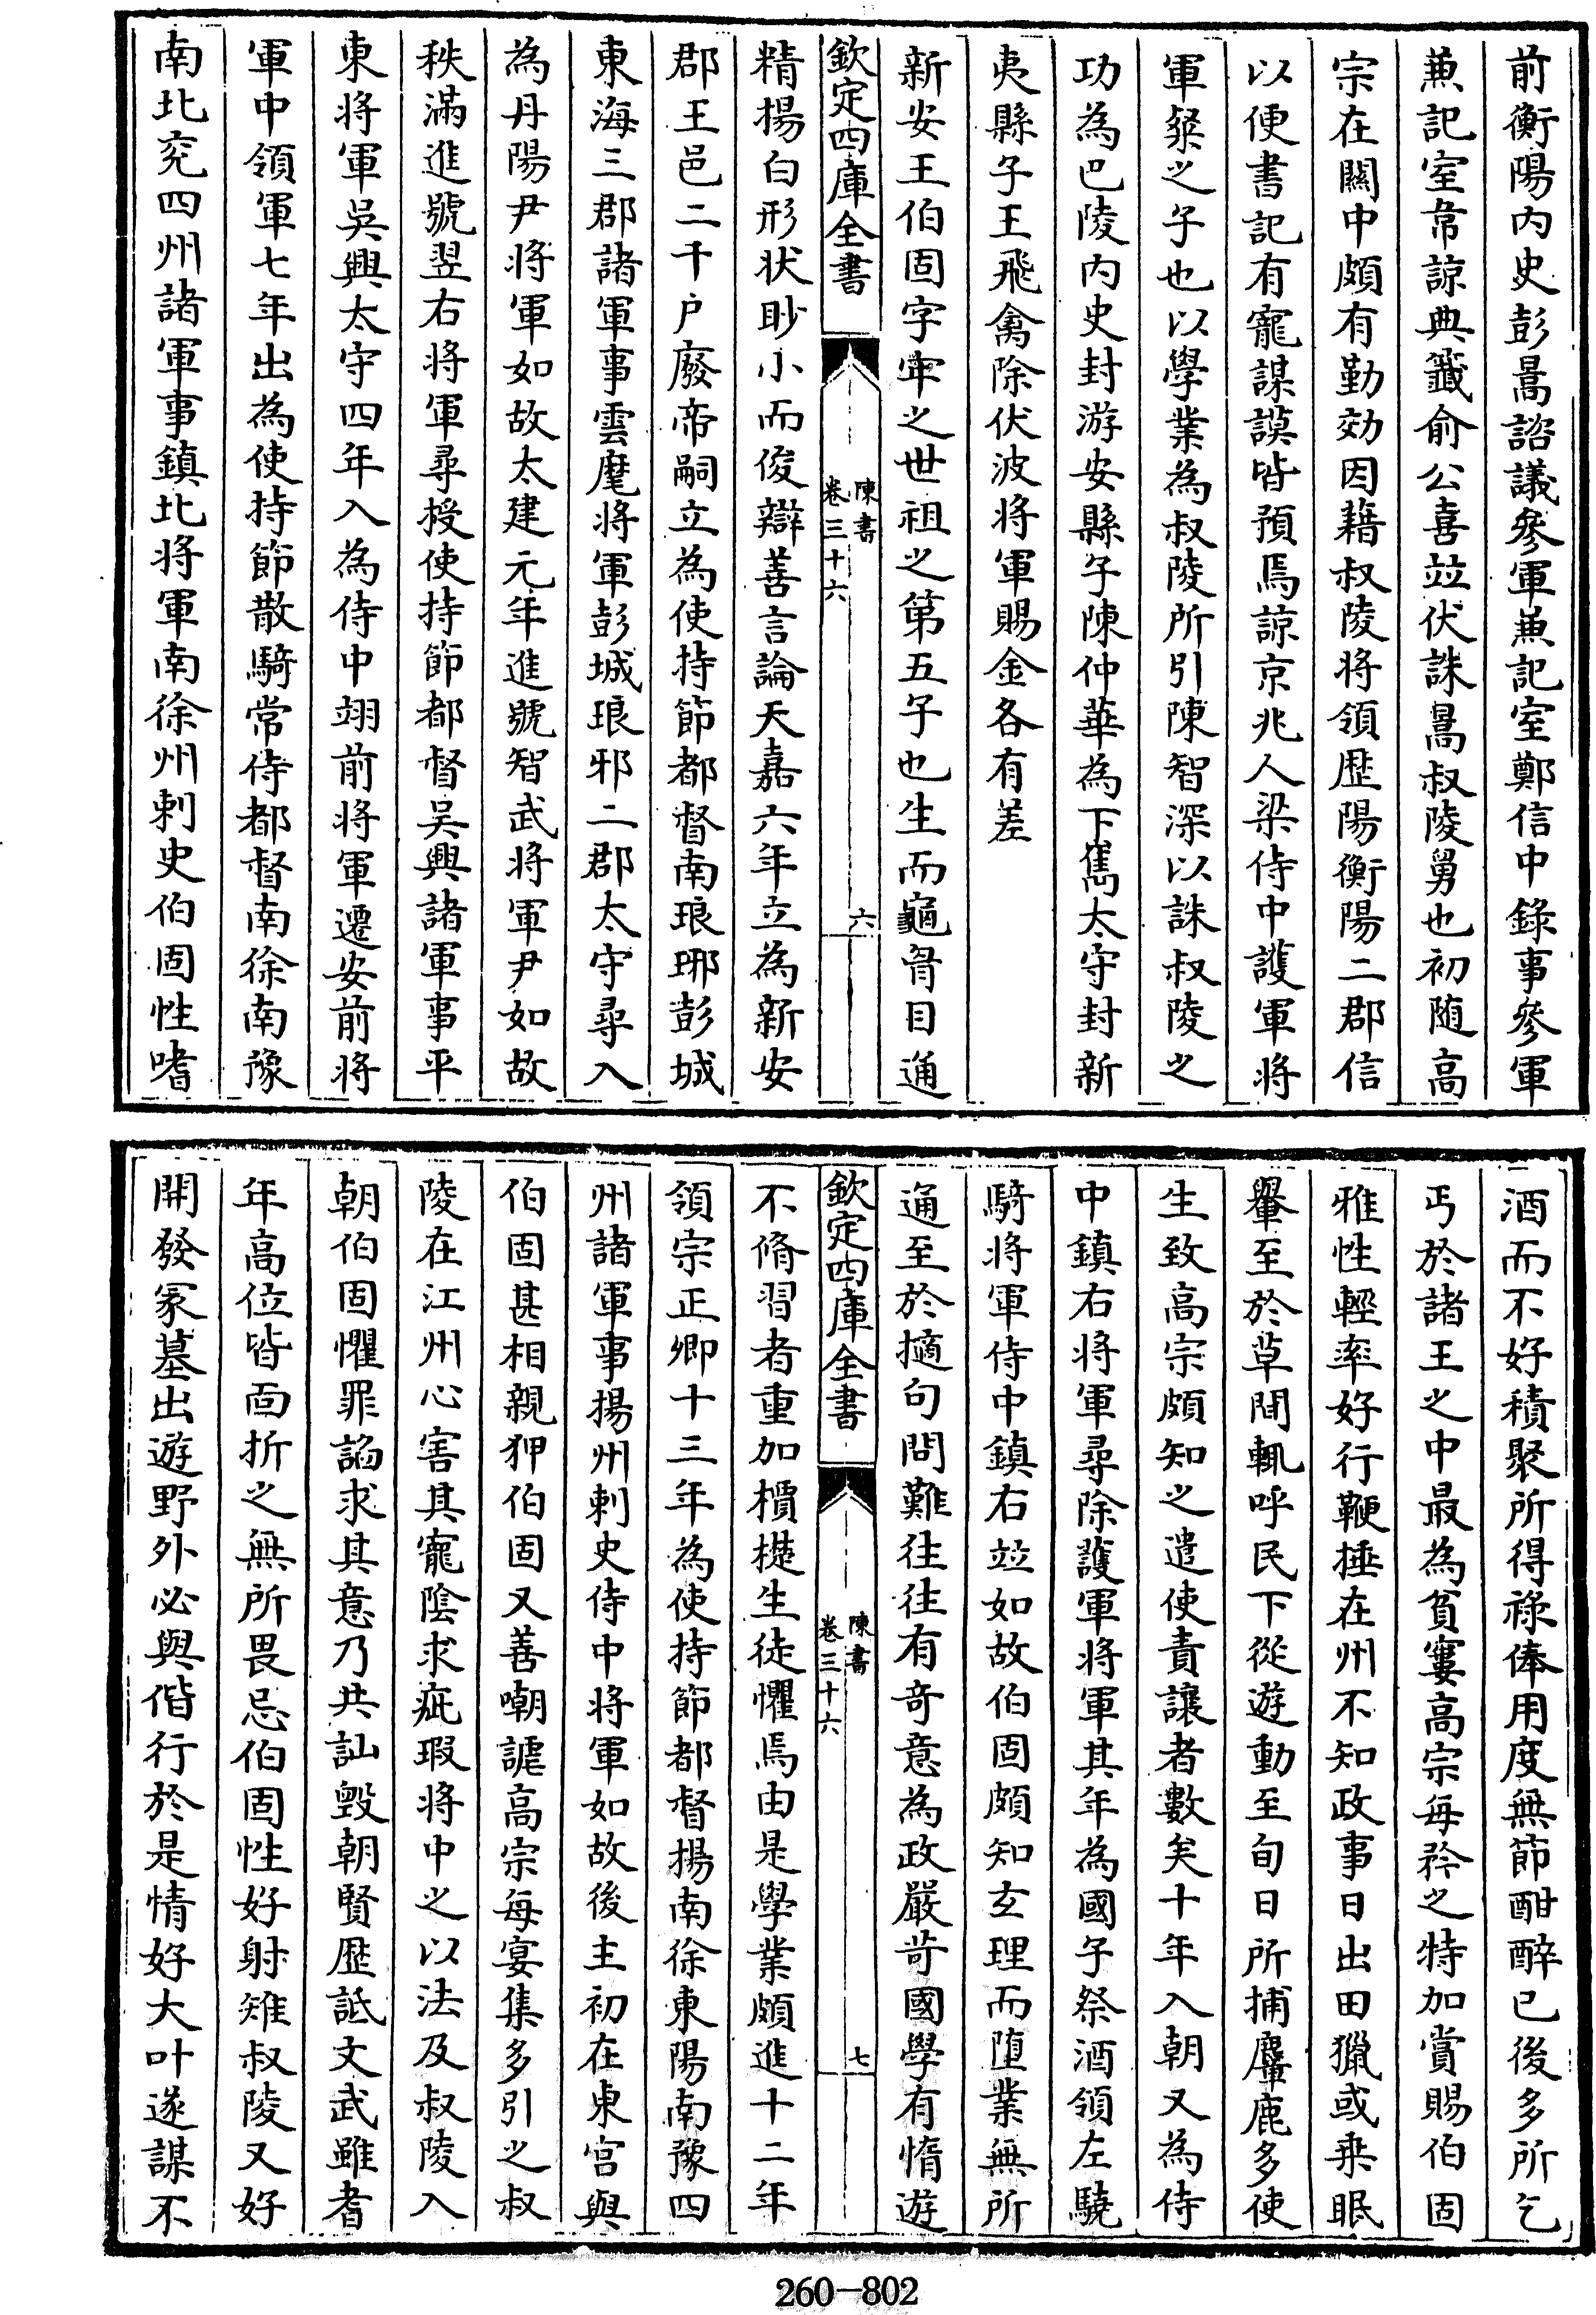 前衡陽内史彭暠諮議參軍兼記室鄭信中錄事參軍
兼記室韋諒典籖俞公喜竝伏誅暠叔陵舅也初随高
宗在關中頗有勤効因藉叔陵将領歴陽衡陽二郡信
以便書記有寵謀謨皆預焉諒京兆人梁侍中護軍将
軍粲之子也以學業為叔陵所引陳智深以誅叔陵之
功為巴陵内史封游安縣子陳仲華為下雋太守封新
夷縣子王飛禽除伏波将軍賜金各有差
新安王伯固字牢之世祖之第五子也生而龜胷目通
欽定四庫全書
陳書
卷三十六
六
精揚白形状眇小而俊辯善言論天嘉六年立為新安
郡王邑二千户廢帝嗣立為使持節都督南琅琊彭城
東海三郡諸軍事雲麾将軍彭城琅邪二郡太守尋入
為丹陽尹将軍如故太建元年進號智武将軍尹如故
秩滿進號翌右将軍尋授使持節都督吳興諸軍事平
東将軍吳興太守四年入為侍中翊前将軍遷安前将
軍中領軍七年出為使持節散騎常侍都督南徐南豫
南北兖四州諸軍事鎮北将軍南徐州刺史伯固性嗜
酒而不好積聚所得祿俸用度無節酣醉已後多所乞
丐於諸王之中最為貧窶高宗每矜之特加賞賜伯固
雅性輕率好行鞭捶在州不知政事日出田獵或乗眠
轝至於草間輒呼民下從遊動至旬日所捕麞鹿多使
生致高宗頗知之遣使責讓者數矣十年入朝又為侍
中鎮右将軍尋除護軍将軍其年為國子祭酒領左驍
騎将軍侍中鎮右竝如故伯固頗知玄理而堕業無所
通至於擿句問難往往有奇意為政嚴苛國學有惰遊
欽定四庫全書
陳書
卷三十六
七
不脩習者重加檟楚生徒懼焉由是學業頗進十二年
領宗正卿十三年為使持節都督揚南徐東陽南豫四
州諸軍事揚州刺史侍中将軍如故後主初在東宫與
伯固甚相親狎伯固又善嘲謔高宗每宴集多引之叔
陵在江州心害其寵陰求疵瑕将中之以法及叔陵入
朝伯固懼罪謟求其意乃共訕毁朝賢歴詆文武雖耆
年高位皆面折之無所畏忌伯固性好射雉叔陵又好
開發冢墓出遊野外必與偕行於是情好大叶遂謀不
260-802